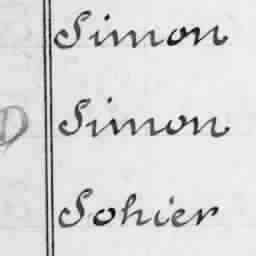 Simon
D Simon
Sohier